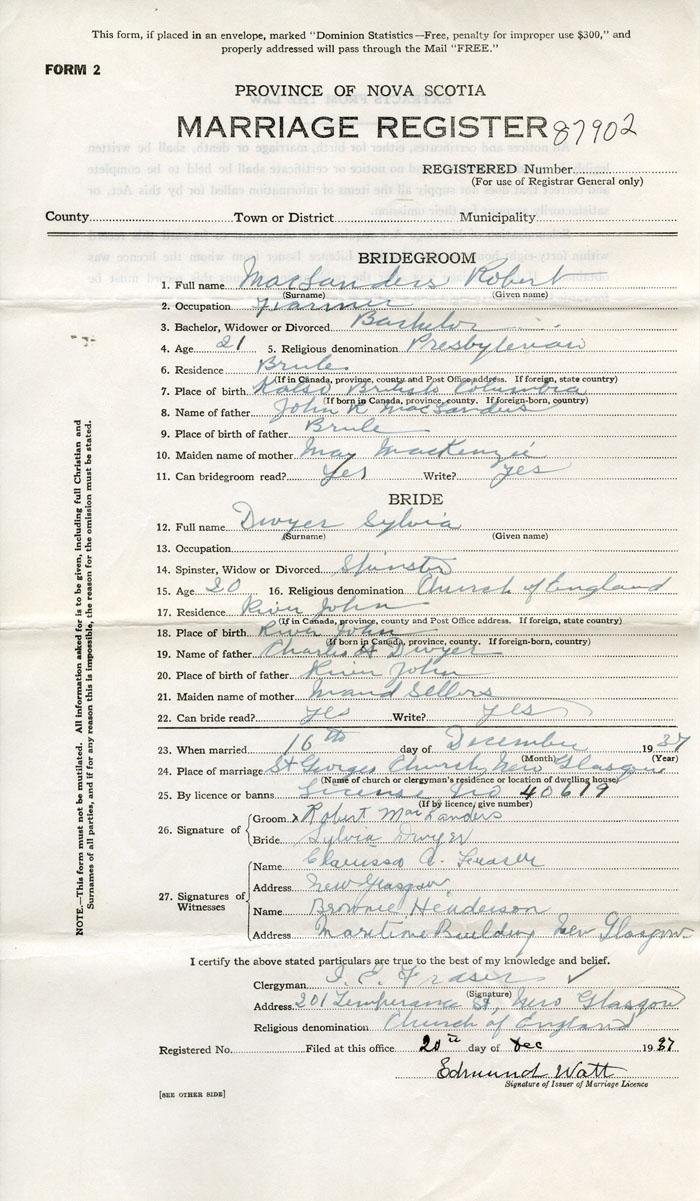 This form, if placed in an envelope, marked "Dominion Statistics—Free, penalty for improper use $300," and
properly addressed will pass through the Mail "FREE."
FORM 2
PROVINCE OF NOVA SCOTIA
MARRIAGE REGISTER 87902
REGISTERED Number
(For use of Registrar General only)
County Town or District Municipality
BRIDEGROOM
1. Full name MacSanders Robert
(Surname) (Given name)
2. Occupation Farmer
3. Bachelor, Widower or Divorced Bachelor
4. Age 21 5. Religious denomination Presbyterian
6. Residence Brule
(If in Canada, province, county and Post Office address. If foreign, state country)
7. Place of birth Kalso British Columbia
(If born in Canada, province, county. If foreign-born, country)
8. Name of father John R MacSanders
9. Place of birth of father Brule
10. Maiden name of mother May MacKenzie
11. Can bridegroom read? Yes Write? yes
BRIDE
12. Full name Dwyer Sylvia
(Surname) (Given name)
13. Occupation
14. Spinster, Widow or Divorced Spinster
15. Age 20 16. Religious denomination Church of England
17. Residence River John
(If in Canada, province, county and Post Office address. If foreign, state country)
18. Place of birth River John
(If born in Canada, province, county. If foreign-born, country)
19. Name of father Charles H Dwyer
20. Place of birth of father River John
21. Maiden name of mother Maud Sellers
22. Can bride read? yes Write? yes
23. When married 16th day of December 1937
(Month) (Year)
24. Place of marriage St Georges Church, New Glasgow
(Name of church or clergyman's residence or location of dwelling house)
25. By licence or banns License No 40679
(If by licence, give number)
26. Signature of
Groom x Robert MacSanders
Bride Sylvia Dwyer
27. Signatures of Witnesses
Name Clarissa A. Fraser
Address New Glasgow
Name Brownie Henderson
Address Maritime Building New Glasgow
I certify the above stated particulars are true to the best of my knowledge and belief.
Clergyman I. E. Fraser
(Signature)
Address 201 Temperance St, New Glasgow
Religious denomination Church of England
Registered No. Filed at this office 20th day of Dec 1937
Edmund Watt
Signature of Issuer of Marriage Licence
[SEE OTHER SIDE]
NOTE.—This form must not be mutilated. All information asked for is to be given, including full Christian and
Surnames of all parties, and if for any reason this is impossible, the reason for the omission must be stated.